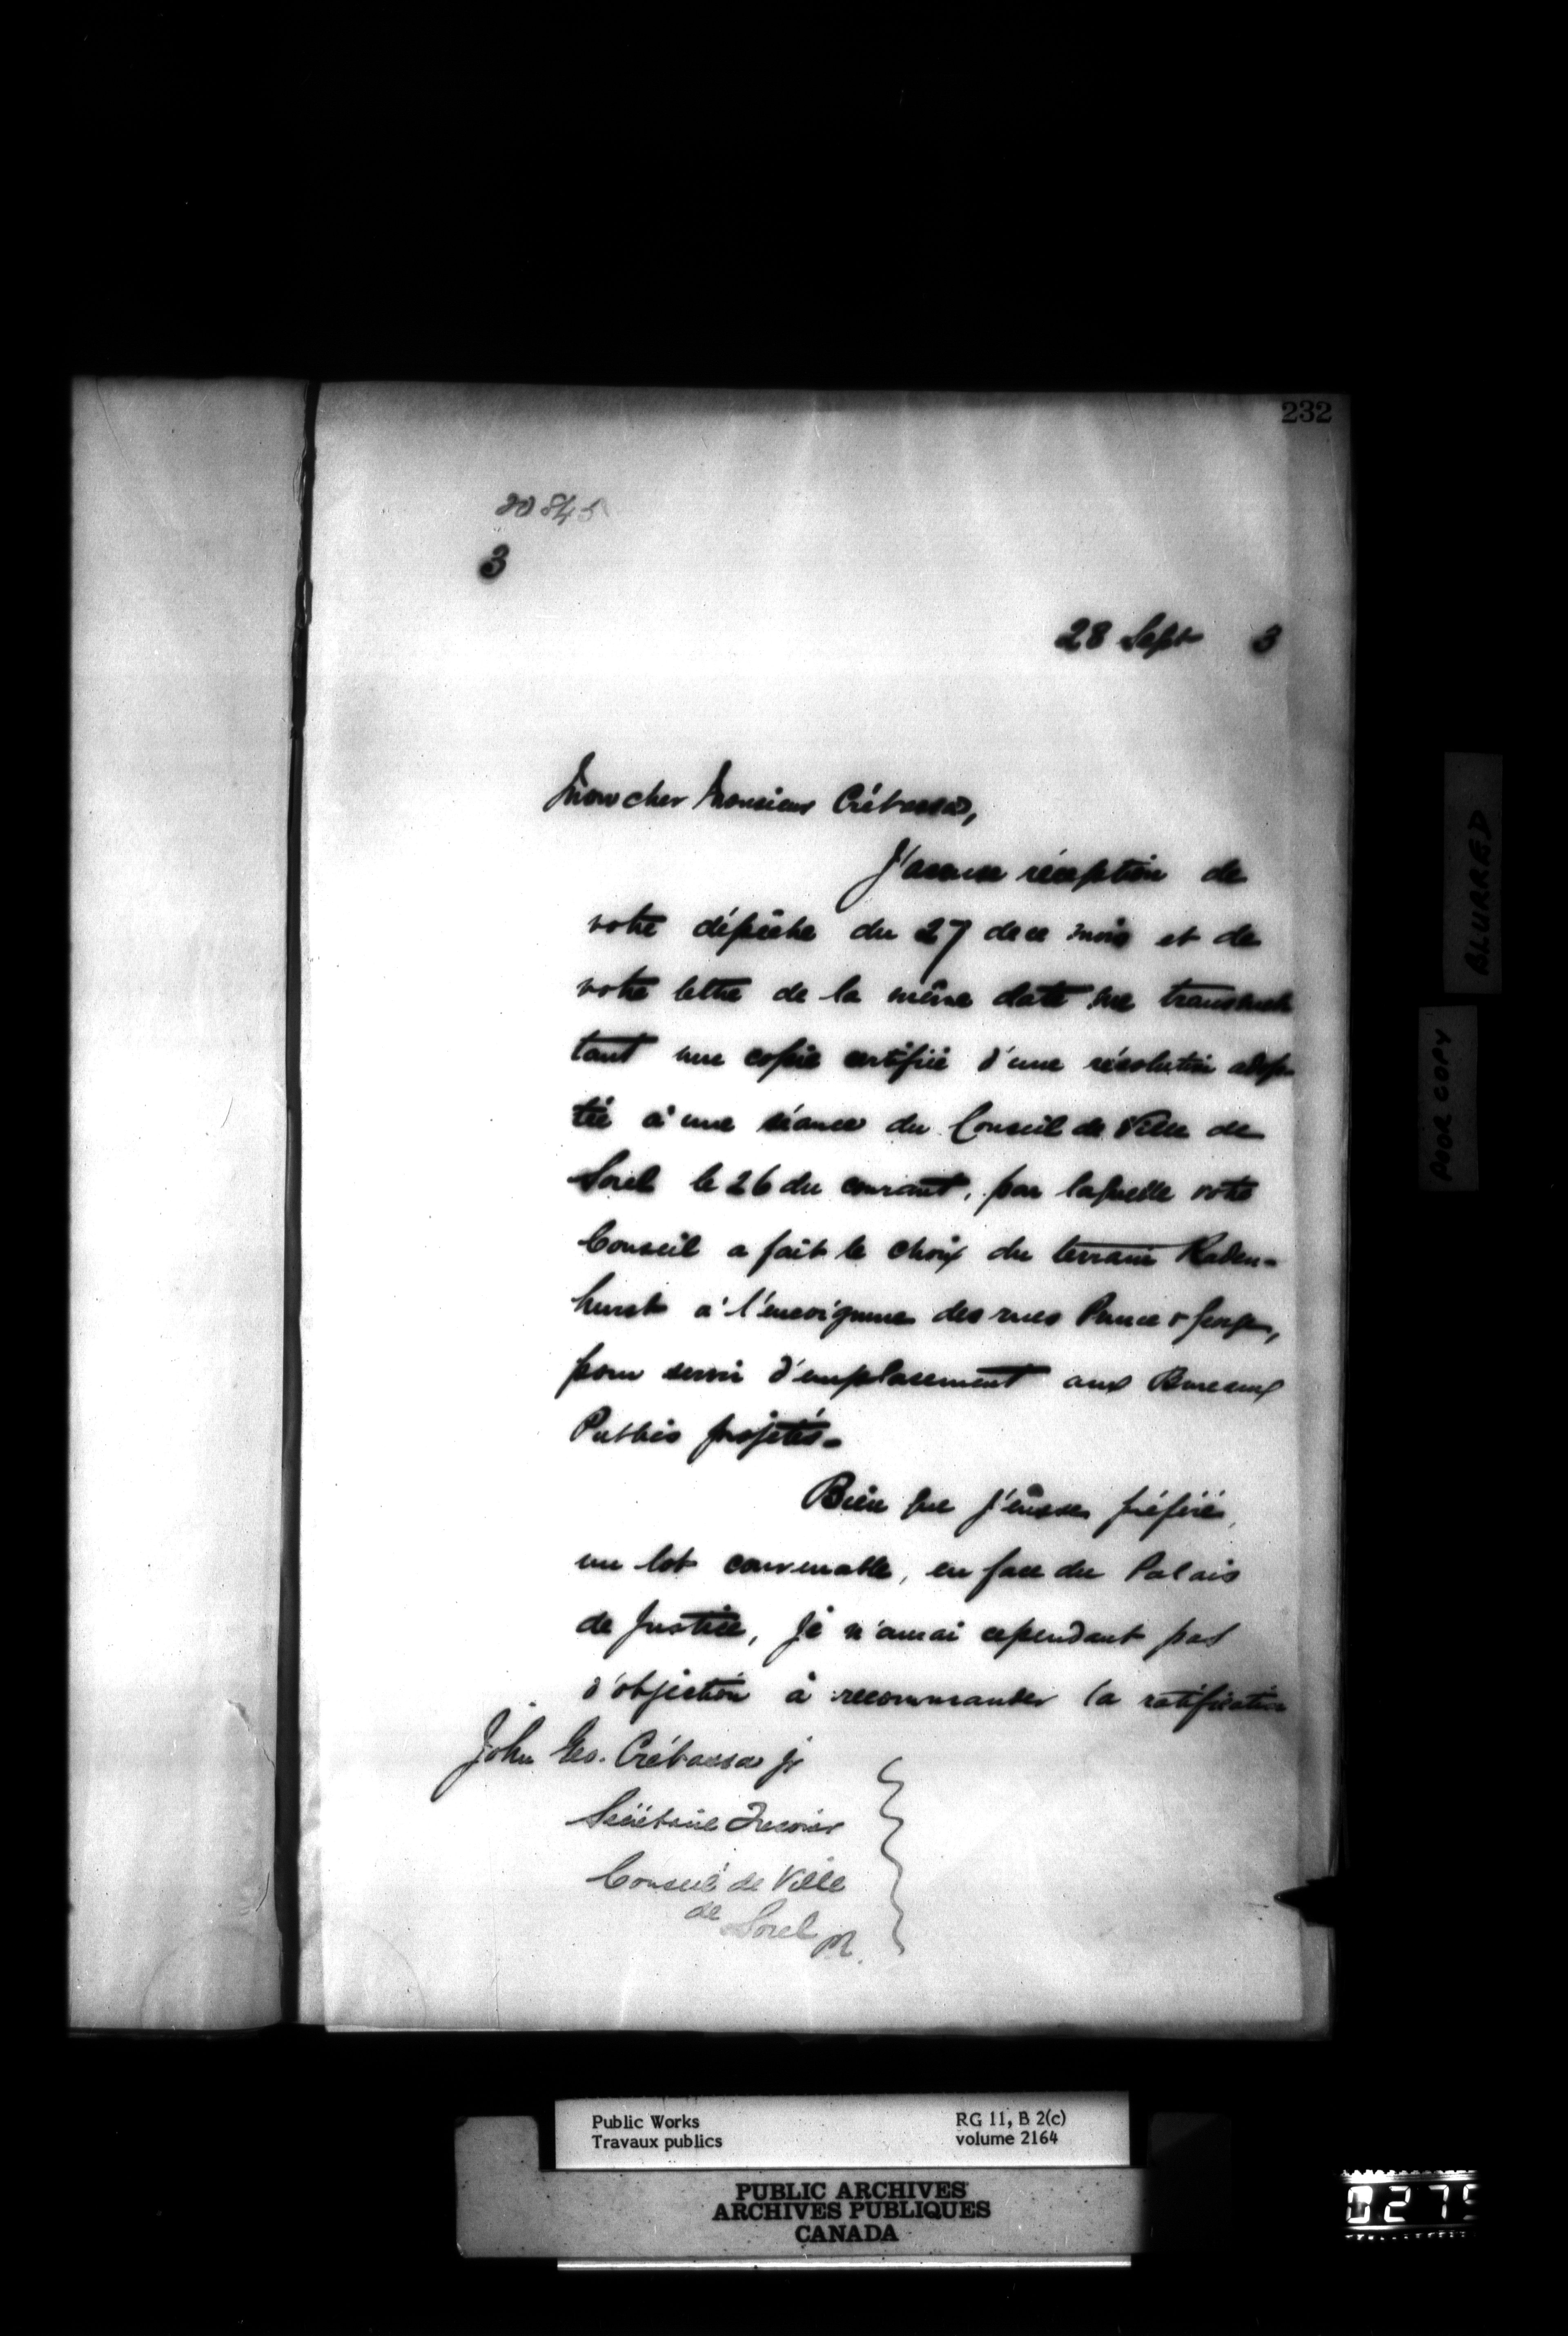 232
20845
3
28 Sept 3
Mon cher Monsieur Crébassa,
J'accuse réception de
votre dépêche du 27 de ce mois et de
votre lettre de la même date me transmet
tant une copie certifiée d'une résolution adop-
tée à une séance du Conseil de Ville de
Sorel le 26 du courant, par laquelle votre
Conseil a fait le choix du terrain Raden-
hurst à l'encoignure des rues Prince & George,
pour servir d'emplacement aux Bureaux
Publics projetés.
Bien que j'eûsse préféré,
un lot convenable, en face du Palais
de Justice, je n'aurai cependant pas
d'objection à recommander la ratification
John Geo. Crébassa jr
Secrétaire Trésorier
Conseil de Ville
de Sorel
BLURRED
POOR COPY
Public Works
Travaux publics
RG 11, B 2(c)
volume 2164
PUBLIC ARCHIVES
ARCHIVES PUBLIQUES
CANADA
0275